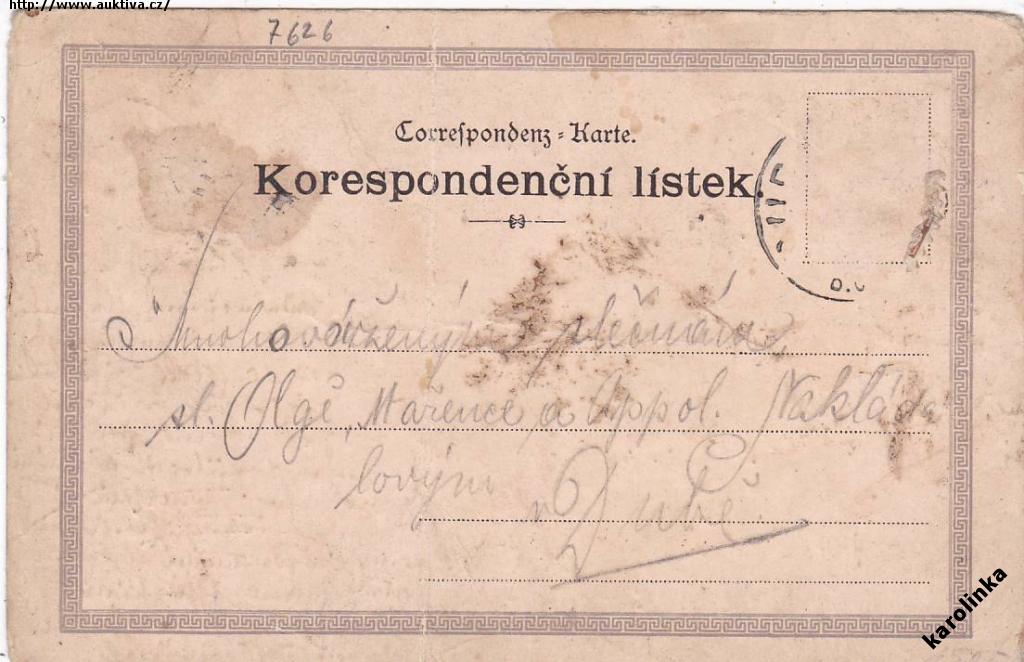 http://www.auktiva.cz/
7626
Correſpondenz-Karte.
Korespondenční lístek.
Mnohováženým slečnám
sl. Olgě, Mařence a Appol. Naklád
lovým
v Dubé
karolinka